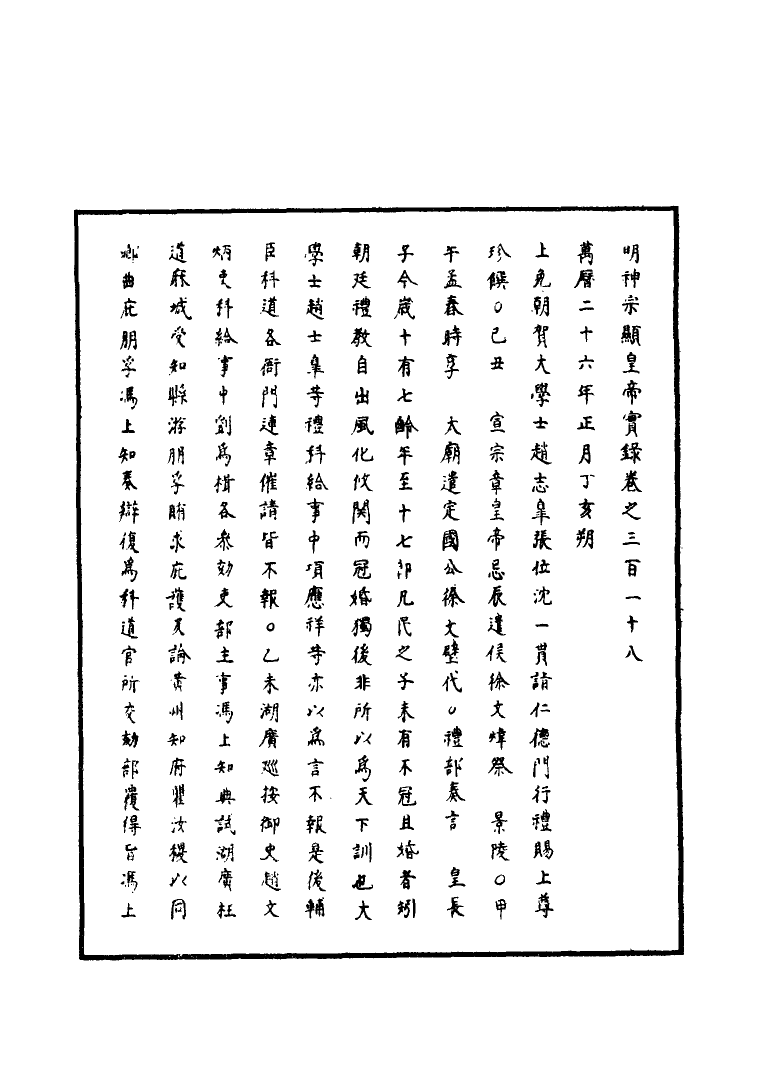 明神宗顯皇帝實錄卷之三百一十八
萬曆二十六年正月丁亥朔
上免朝賀大學士趙志皐張位沈一貫詣仁德門行禮賜上尊
珍饌○己丑　宣宗章皇帝忌辰遣侯徐文煒祭　景陵○甲
午孟春時享　太廟遣定國公徐文璧代○禮部奏言　皇長
子今歲十有七齡年至十七即凡民之子未有不冠且婚者矧
朝廷禮教自出風化攸関而冠婚獨後非所以為天下訓也大
學士趙士皐等禮科給事中項應祥等亦以為言不報是後輔
臣科道各衙門連章催請皆不報○乙未湖廣巡按御史趙文
炳吏科給事中劉為楫各叅劾吏部主事馮上知典試湖廣枉
道麻城受知縣游朋孚賄求庇護又論黄州知府瞿汝稷以同
鄉曲庇朋孚馮上知奏辯復為科道官所交劾部覆得旨馮上